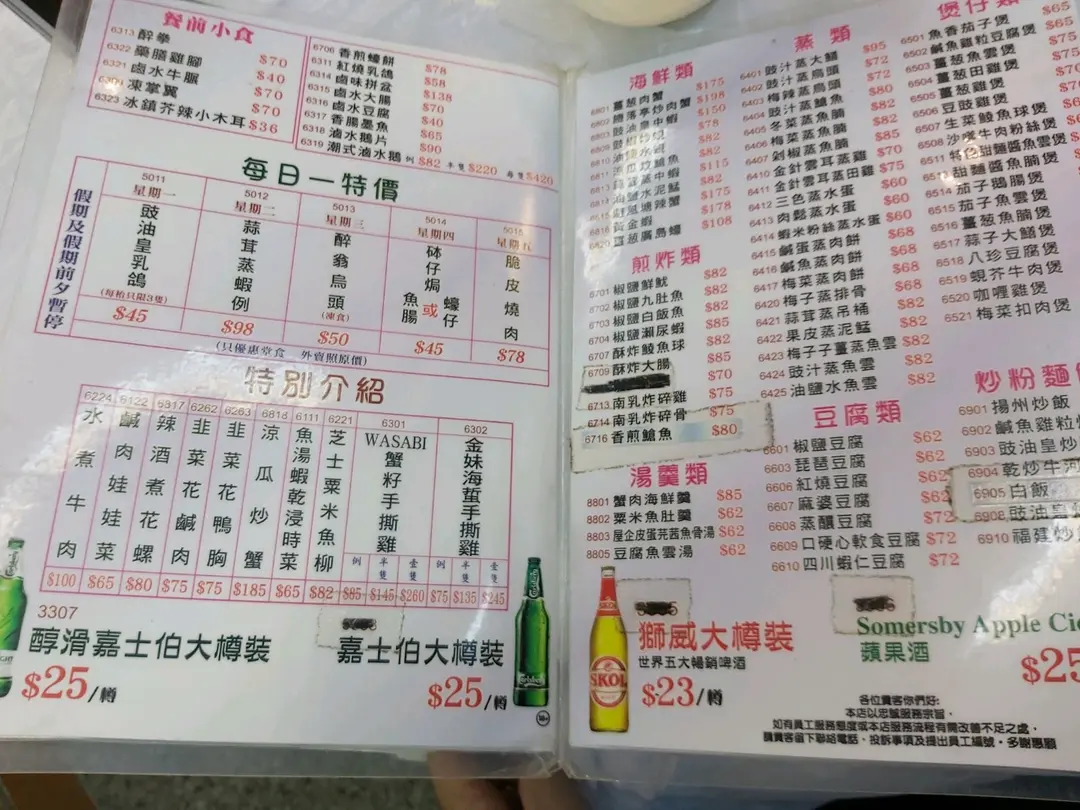 餐前小食
6313 醉拳 $70
6322 藥膳雞腳 $40
6321 鹵水牛𦟌 $70
凍掌翼 $70
6323 冰鎮芥辣小木耳 $36
6706 香煎蠔餅 $78
6311 紅燒乳鴿 $58
6314 鹵味拼盆 $138
6315 鹵水大腸 $70
6316 鹵水豆腐 $40
6317 香腸墨魚 $65
6318 滷水鵝片 $90
6319 潮式滷水鵝 例 $82 半隻 $220 每隻 $420
每日一特價
假期及假期前夕暫停
5011 星期一 豉油皇乳鴿 (每枱只限3隻) $45
5012 星期二 蒜茸蒸蝦例 $98
5013 星期三 醉翁烏頭 (凍食) $50
5014 星期四 砵仔焗魚腸或蠔仔 $45
5015 星期五 脆皮燒肉 $78
(只優惠堂食 外賣照原價)
特別介紹
6224 水煮牛肉 $100
6122 鹹肉娃娃菜 $65
6317 辣酒煮花螺 $80
6262 韭菜花鹹肉 $75
6263 韭菜花鴨胸 $75
6818 涼瓜炒蟹 $185
6111 魚湯蝦乾浸時菜 $65
6221 芝士粟米魚柳 $82
6301 WASABI 蟹籽手撕雞 例 $85 半隻 $145 壹隻 $260
6302 金妹海蜇手撕雞 例 $75 半隻 $135 壹隻 $245
3307
醇滑嘉士伯大樽裝
$25/樽
嘉士伯大樽裝
$25/樽
Carlsberg
18+
海鮮類
6801 薑蔥肉蟹 $175
避風塘辣蟹
黃金蝦
$108
煎炸類
6701 椒鹽鮮魷 $82
6702 椒鹽九肚魚 $82
6703 椒鹽白飯魚 $82
6704 椒鹽瀨尿蝦 $85
6707 酥炸鯪魚球 $82
6709 酥炸大腸 $85
$70
6713 南乳炸碎雞 $75
6714 南乳炸碎骨 $75
6716 香煎鯧魚 $80
湯羹類
8801 蟹肉海鮮羹 $85
8802 粟米魚肚羹 $62
8803 屋企皮蛋芫茜魚骨湯 $62
8805 豆腐魚雲湯 $62
SKOL
獅威大樽裝
世界五大暢銷啤酒
$23/樽
蒸類
6401 豉汁蒸大鱔 $95
6402 豉汁蒸烏頭 $72
6403 梅辣蒸烏頭 $72
6404 豉汁蒸鯇魚 $80
6405 冬菜蒸魚腩 $82
6406 梅菜蒸魚腩 $82
6407 剁椒蒸魚腩
6410 金針雲耳蒸雞
6411 金針雲耳蒸田雞 $75
6412 三色蒸水蛋 $60
6413 肉鬆蒸水蛋 $60
6414 蝦米粉絲蒸水蛋 $60
6415 鹹蛋蒸肉餅 $68
6416 鹹魚蒸肉餅 $68
6417 梅菜蒸肉餅 $68
6420 梅子蒸排骨
6421 蒜茸蒸吊桶 $82
6422 果皮蒸泥鯭 $82
6423 梅子子薑蒸魚雲 $82
6424 豉汁蒸魚雲 $82
6425 油鹽水魚雲 $82
豆腐類
6601 椒鹽豆腐 $62
6603 琵琶豆腐 $62
6606 紅燒豆腐 $62
6607 麻婆豆腐 $62
6608 蒸釀豆腐 $72
6609 口硬心軟食豆腐 $72
6610 四川蝦仁豆腐 $72
煲仔類
6501 魚香茄子煲 $65
6502 鹹魚雞粒豆腐煲
6503 薑蔥魚雲煲
6504 薑蔥田雞煲
6505 薑蔥雞煲
6506 豆豉雞煲
6507 生菜鯪魚球煲
6508 沙嗲牛肉粉絲煲
6511 特色甜麵醬魚雲煲
甜麵醬魚腩煲
6514 茄子鵝腸煲
6515 茄子魚雲煲
6516 薑蔥魚腩煲
6517 蒜子大鱔煲
6518 八珍豆腐煲
6519 蜆芥牛肉煲
6520 咖喱雞煲
6521 梅菜扣肉煲
炒粉麵
6901 揚州炒飯
6902 鹹魚雞粒
6903 豉油皇炒
6904 乾炒牛河
6905 白飯
6908 豉油皇
6910 福建炒
Somersby Apple Ci
蘋果酒
$25
各位貴客你們好:
本店以忠誠服務宗旨,
如有員工服務態度或本店服務流程有關改善不足之處,
請貴客留下聯絡電話、投訴事項及提出員工編號。多謝惠顧